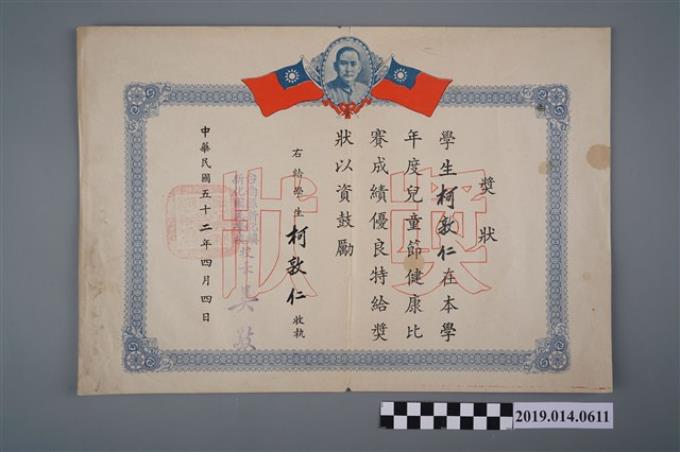 獎狀
學生柯敦仁在本學
年度兒童節健康比
賽成績優良特給獎
狀以資鼓勵
右給學生柯敦仁收執
中華民國五十二年四月四日
獎狀
2019.014.0611